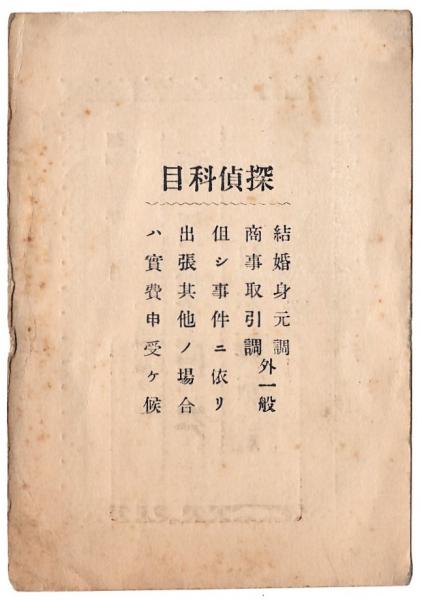 探偵科目
結婚身元調
商事取引調
外一般
伹シ事件ニ依リ
出張其他ノ場合
ハ實費申受ケ候